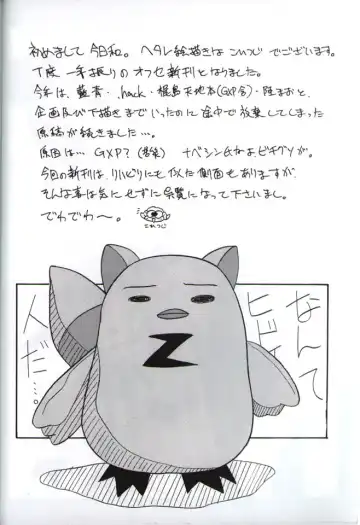 初めまして今日和。ヘタレ絵描きはこいつじでございます。
丁度一年振りのオフセ新刊となりました。
今年は、藍青・.hack・梶島天地本(GXP含)・陸まおと、
企画及び下描きまでいったのに途中で放棄してしまった
原稿が続きました…。
原因は… GXP?
今回の新刊は、リハビリにも似た側面もありますが、
そんな事は気にせずに御覧になって下さいまし。
でわでわ〜。
こいつじ
なんて
ヒドイ
人だ…。
Z